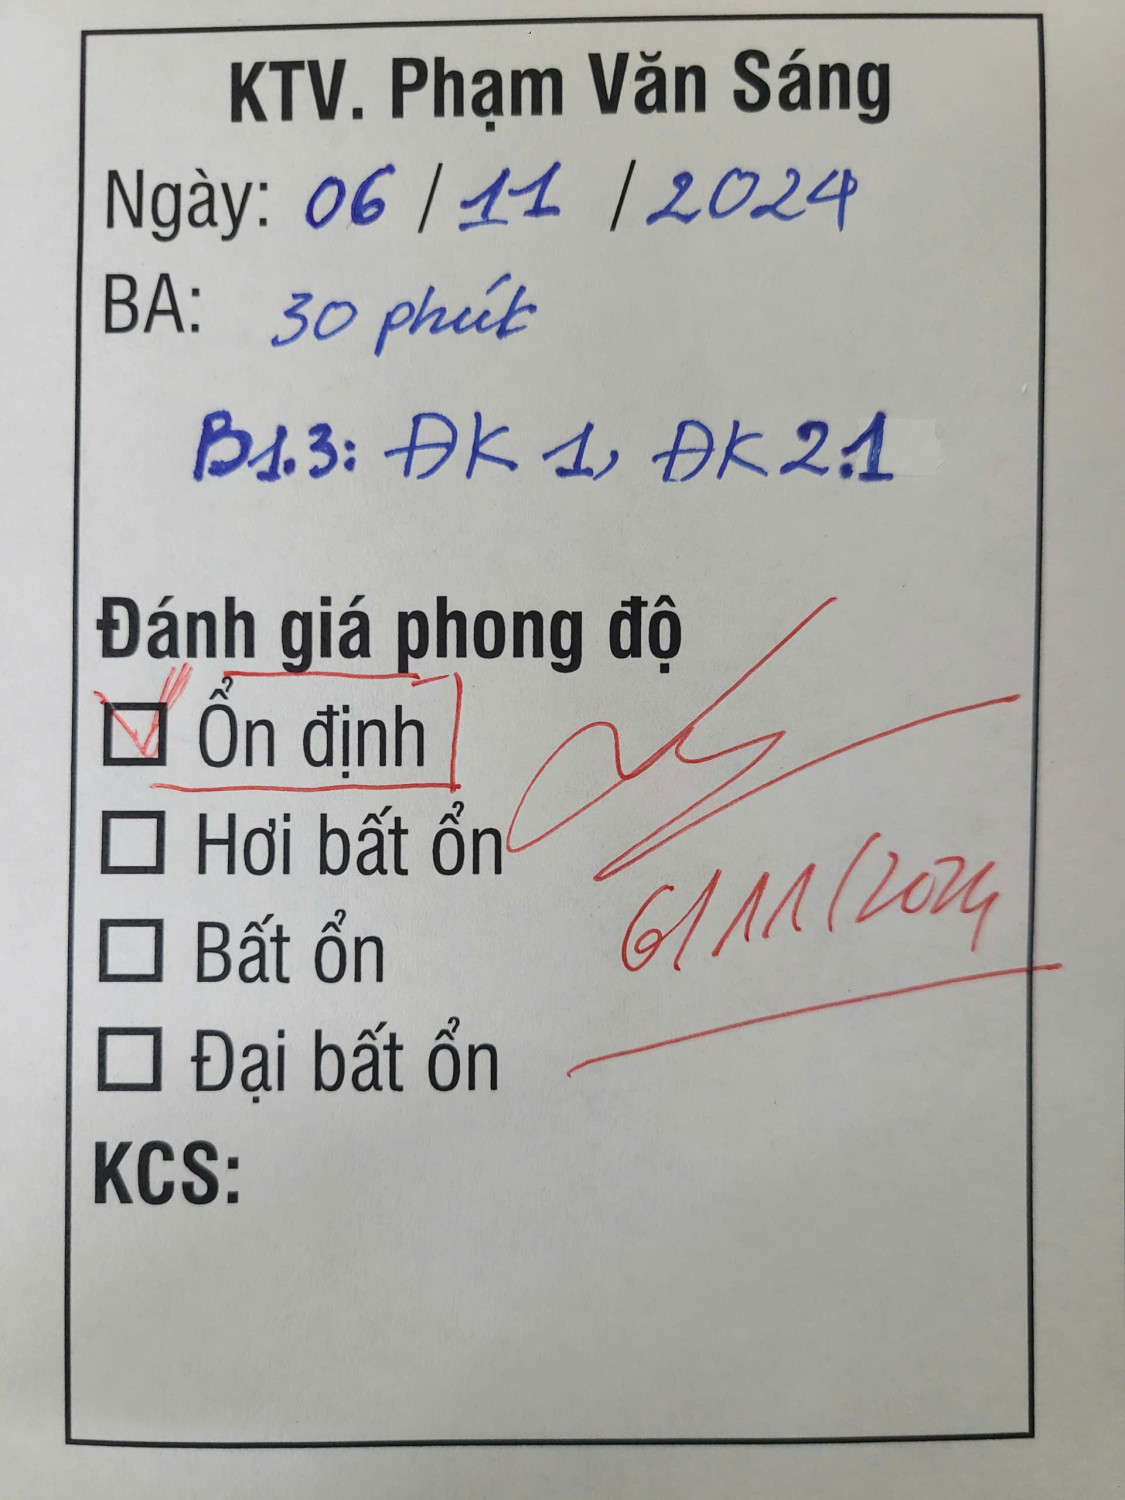 KTV. Phạm Văn Sáng
Ngày: 06 / 11 / 2024
BA: 30 phút
B1.3: ĐK 1, ĐK 2.1
Đánh giá phong độ
Ổn định
Hơi bất ổn
Bất ổn
Đại bất ổn
6/11/2024
KCS: